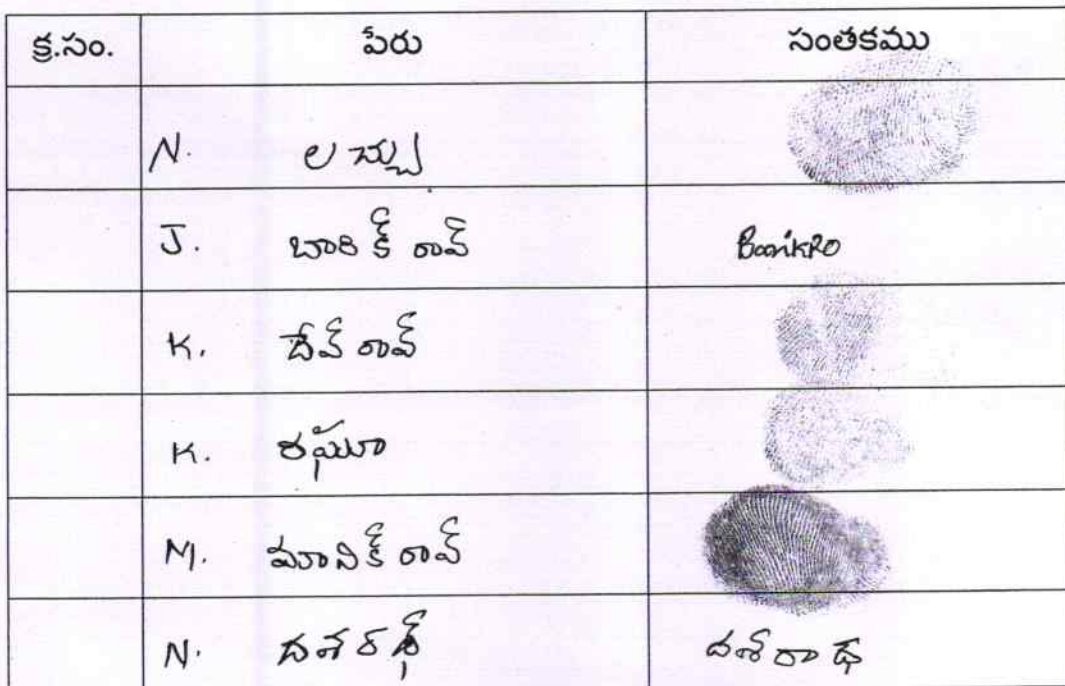 క్ర.సం. పేరు సంతకము
N. లచ్చు
J. బారిక్ రావ్
K. దేవ్ రావ్
K. రఘూ
M. మానిక్ రావ్
N. దశరథ్ దశరాథ